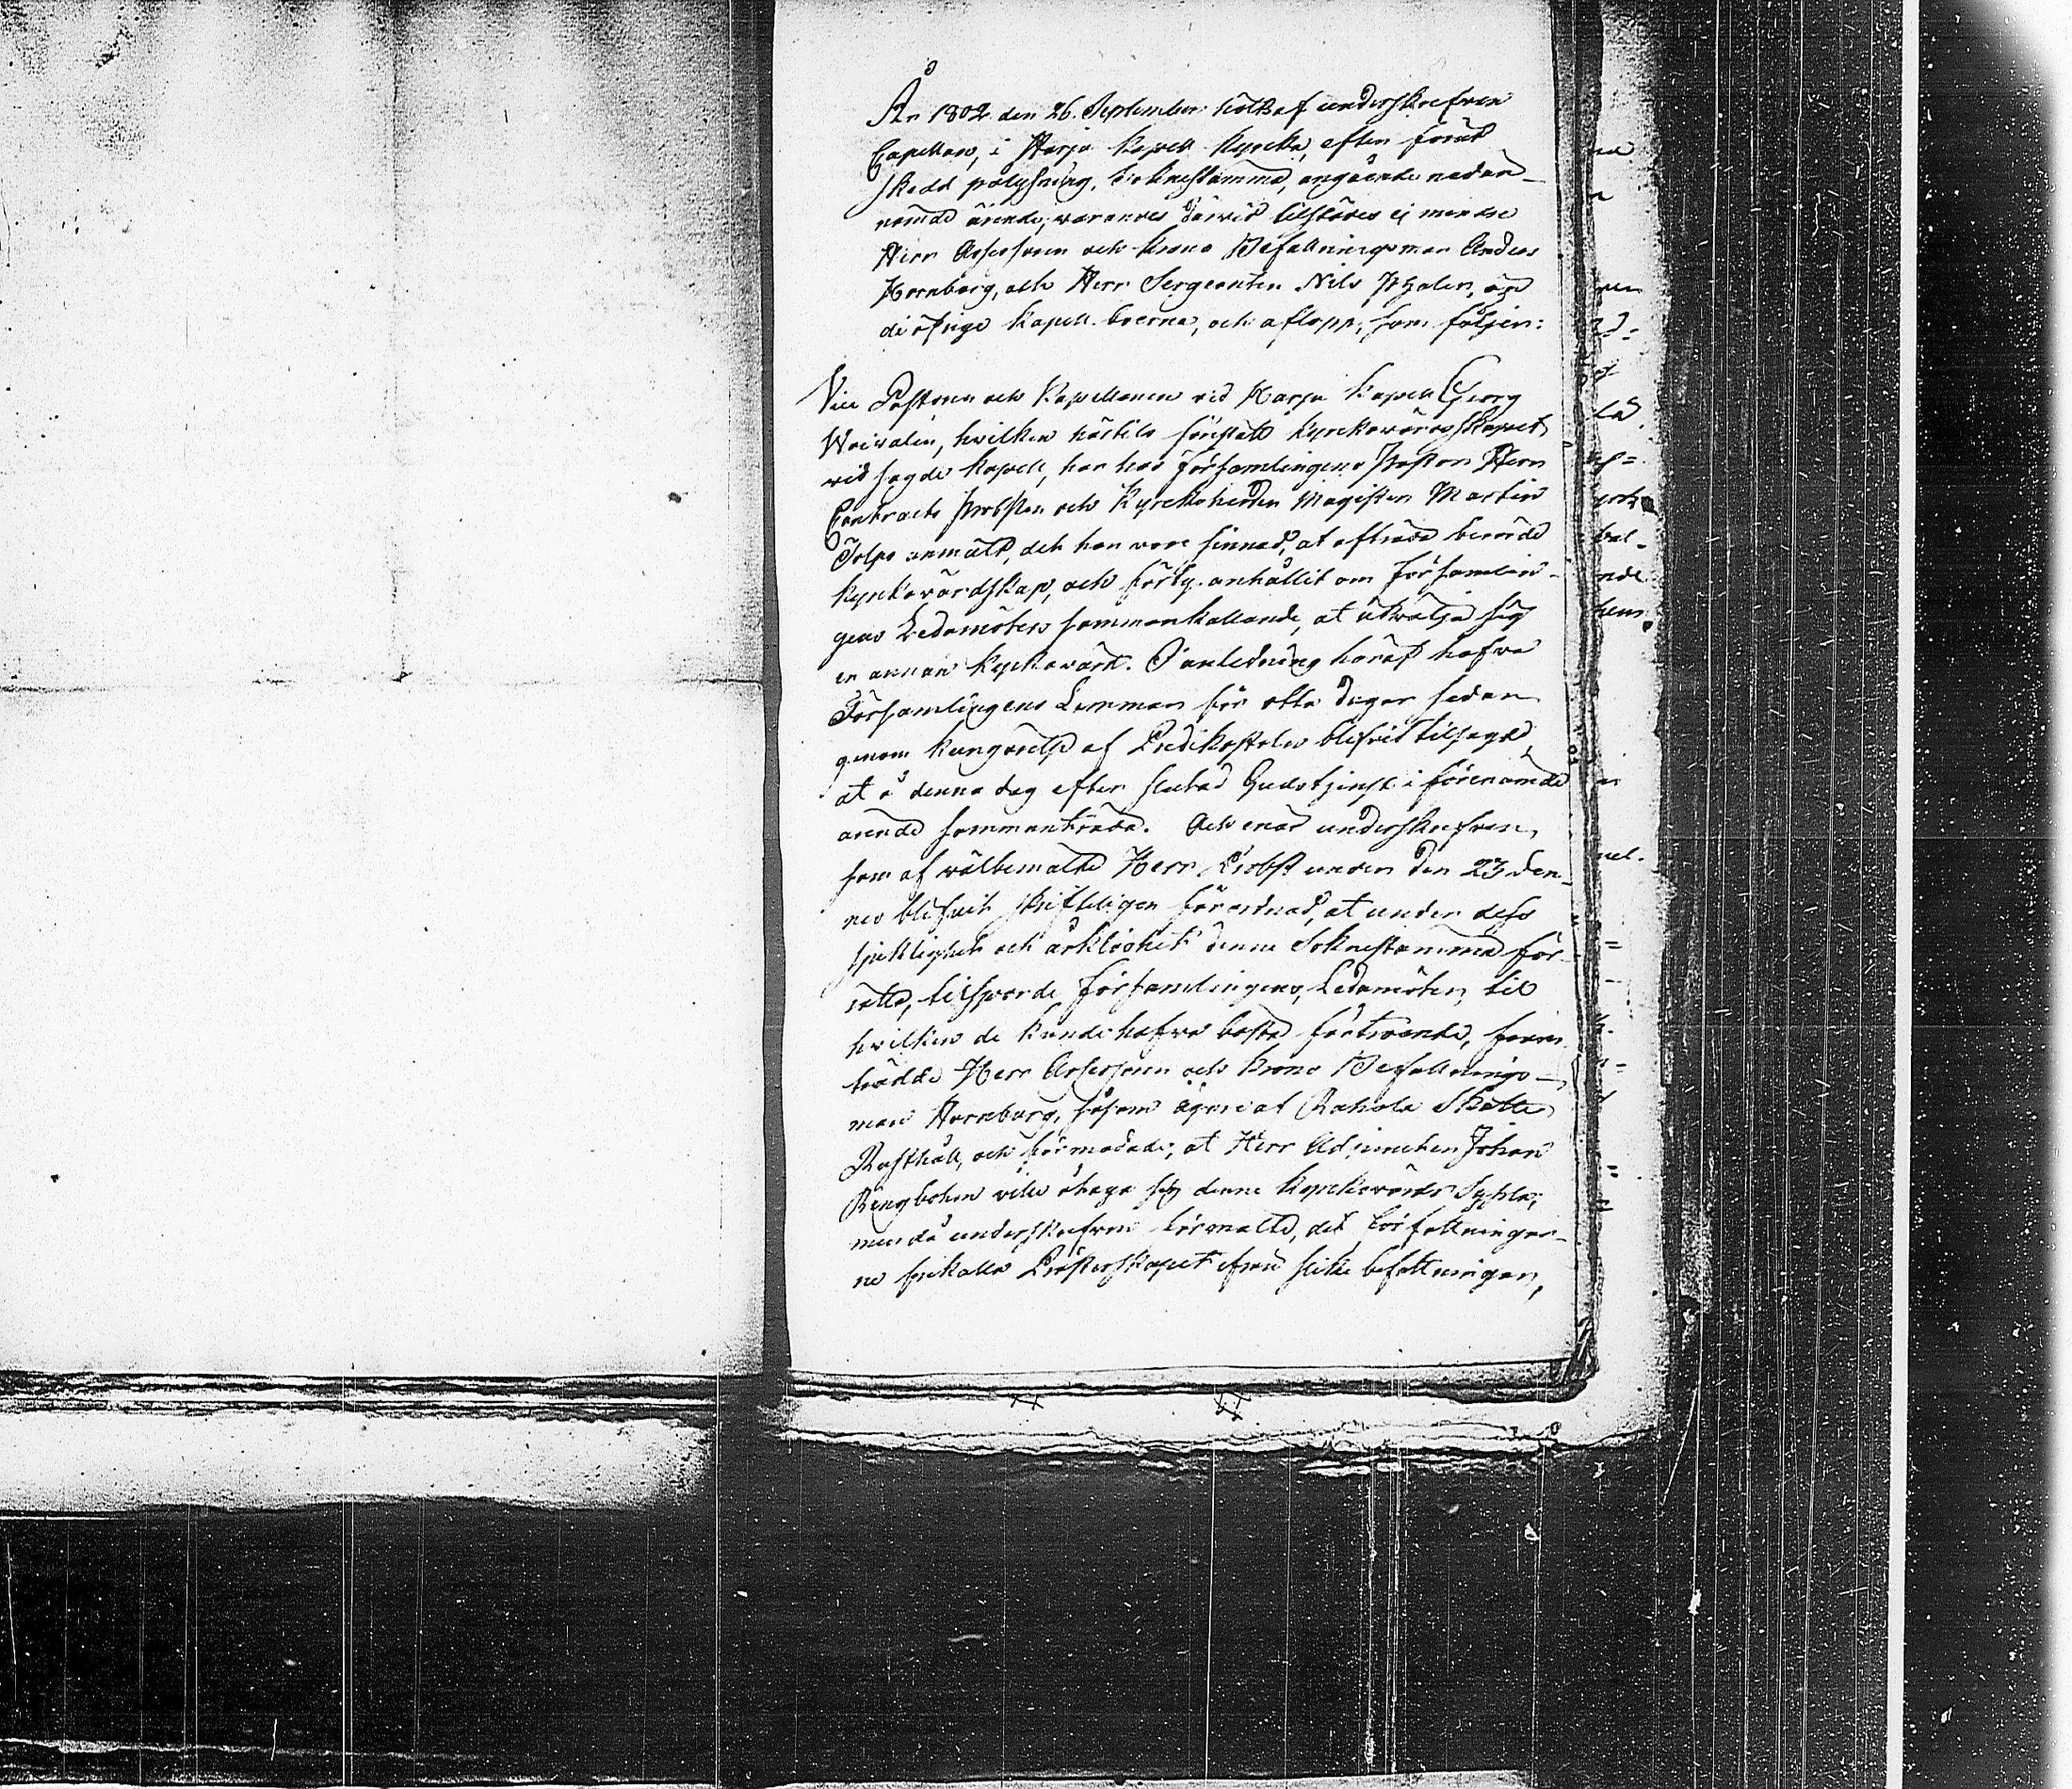 År 1802 den 26. September hölts af underskrefven
Capellan, i Karja Kapell Kyrcka, efter förut
skedd pålysning, Soknestämma, angående nedan-
nämde ärende, warandes därwid tilstädes ej mindre
Herr Assessoren och Krono Befallningsman Anders
Hornborg, och Herr Sergeanten Nils Thalen, än
de öfrige Kapell-boerne, och aflopp, som följer:
Vice Pastoren och Kapellanen vid Karja Kapell Georg
Woivalin, hwilken härtils förestått Kyrkowärdskapet
vid sagde Kapell, har hos Församlingens Pastor Herr
Contracts Probsten och Kyrckoherden Magister Martin
Tolpo anmält, det han vore sinnad, at afträda berörde
Kyrkowärdskap, och förty anhållit om Församlin-
gens Ledamöters sammankallande, at utwälja sig
en annan Kyrkowärd. I anledning häraf hafwa
Församlingens Lemmar för otta dagar sedan
genom kungörelse af Predikostolen blifvit tilsagde,
at å denna dag efter slutad Gudstjenst i förenämde
ärende sammanträda. Och enär underskrefven,
som af wälbemälte Herr Probst under den 23 den-
nes blifvit skrifteligen förordnad, at under dess
sjuklighet och denne Soknestämma för-
rätta, tilsporde Församlingens Ledamöter, til
hvilken de kunde hafwa bästa förtroende, fram-
trädde Herr Assessoren och Krono Befallnings-
man Hornborg, såsom ägare af Rahola Skatte
Rusthåll, och förmodade; at Herr Adjuncten Johan
Ringbohm ville åtaga sig denne Kyrkowärds Syssla;
men då underskrefven förmälte, det författningar-
ne frikalla Prästerskapet ifrån slike befattningar,